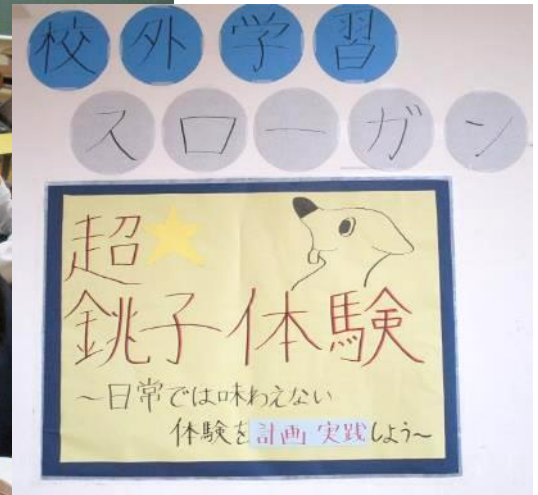 校外学習
スローガン
超★
銚子体験
～日常では味わえない
体験を計画 実践しよう～